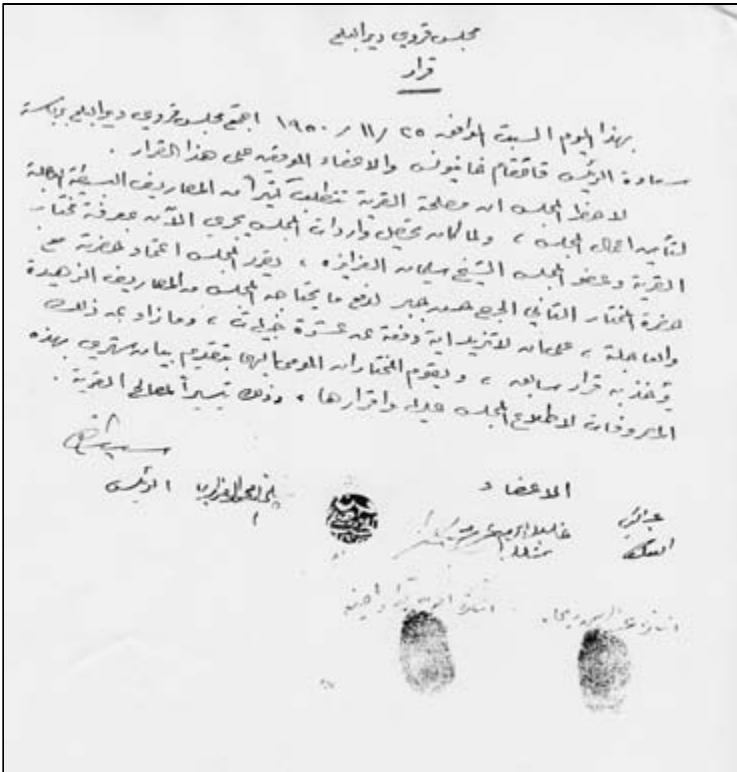 مجلس قروي ديرالبلح
قرار
بهذا اليوم السبت الموافق ٢٥ / ١١ / ١٩٥٠ اجتمع مجلس قروي ديرالبلح برئاسة
سعادة الرئيس قائمقام خانيونس والاعضاء الموقعين على هذا القرار .
لاحظ المجلس ان مصلحة القرية تتطلب كثيراً من المصاريف البسيطة
لتأمين اعمال المجلس ، ولما كان تحصيل واردات المجلس يجري الآن بمعرفة مختار
القرية وعضو المجلس الشيخ سليمان العزايزه ، يقرر المجلس اعتماد حضرته مع
حضرة المختار الثاني الحاج حسن جبر لدفع ما يحتاجه المجلس من المصاريف الزهيدة
والعاجلة ، على ان لا تزيد اية دفعة عن عشرة جنيهات ، وما زاد عن ذلك
يؤخذ به قرار سابق ، ويقوم المختاران المومى اليهما بتقديم بيان شهري بهذه
المصروفات لاطلاع المجلس عليه واقرارها ، وذلك تيسيراً لمصالح القرية .
الاعضاء
الرئيس